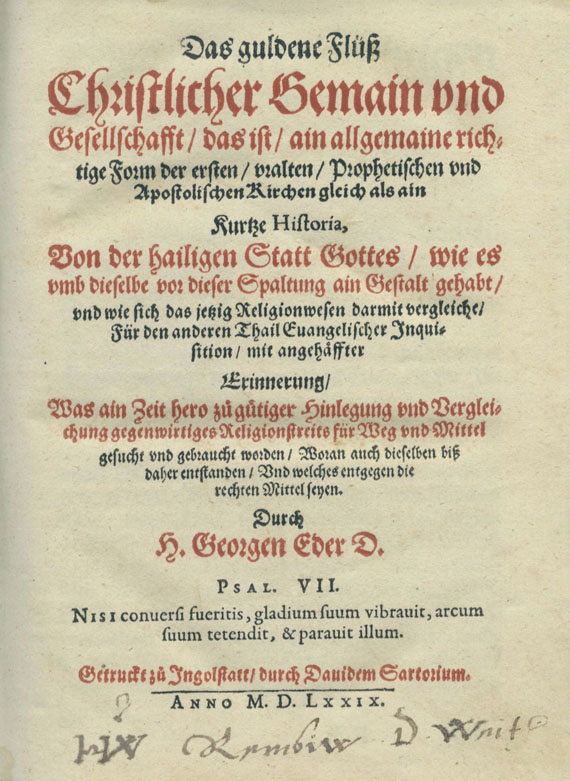 Das guldene Flüß
Christlicher Gemain vnd
Gesellschafft / das ist / ain allgemaine rich-
tige Form der ersten / vralten / Prophetischen vnd
Apostolischen Kirchen gleich als ain
Kurtze Historia,
Von der hailigen Statt Gottes / wie es
vmb dieselbe vor dieser Spaltung ain Gestalt gehabt /
vnd wie sich das jetzig Religionwesen darmit vergleiche /
Für den anderen Thail Euangelischer Inqui-
sition / mit angehäffter
Erinnerung /
Was ain Zeit hero zů gůtiger Hinlegung vnd Verglei-
chung gegenwirtiges Religionstreits für Weg vnd Mittel
gesucht vnd gebraucht worden / Woran auch dieselben biß
daher entstanden / Vnd welches entgegen die
rechten Mittel seyen.
Durch
H. Georgen Eder D.
PSAL. VII.
NISI conuersi fueritis, gladium suum vibrauit, arcum
suum tetendit, & parauit illum.
Getruckt zů Ingolstatt / durch Dauidem Sartorium.
ANNO M. D. LXXIX.